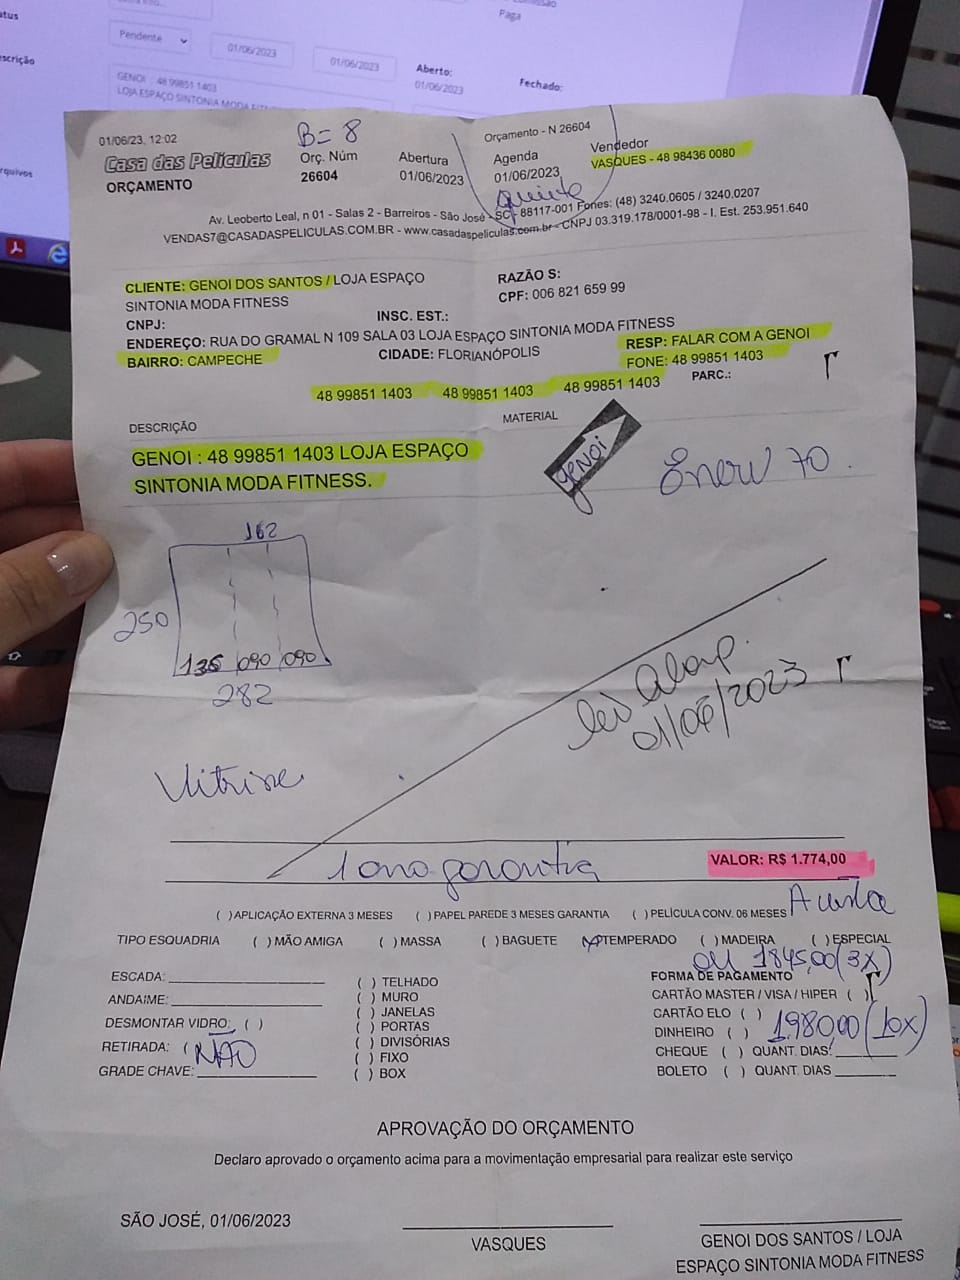 Paga
Pendente
01/06/2023
01/06/2023
Aberto:
01/06/2023
Fechado:
GENOI : 48 99851 1403
LOJA ESPAÇO SINTONIA MODA
01/06/23, 12:02
B= 8
Orçamento - N 26604
Casa das Películas
ORÇAMENTO
Orç. Núm
26604
Abertura
01/06/2023
Agenda
01/06/2023
Vendedor
VASQUES - 48 98436 0080
Av. Leoberto Leal, n 01 - Salas 2 - Barreiros - São José - SC - 88117-001 Fones: (48) 3240.0605 / 3240.0207
VENDAS7@CASADASPELICULAS.COM.BR - www.casadaspeliculas.com.br - CNPJ 03.319.178/0001-98 - I. Est. 253.951.640
CLIENTE: GENOI DOS SANTOS / LOJA ESPAÇO
SINTONIA MODA FITNESS
RAZÃO S:
CPF: 006 821 659 99
CNPJ:
INSC. EST.:
ENDEREÇO: RUA DO GRAMAL N 109 SALA 03 LOJA ESPAÇO SINTONIA MODA FITNESS
BAIRRO: CAMPECHE
CIDADE: FLORIANÓPOLIS
RESP: FALAR COM A GENOI
FONE: 48 99851 1403
48 99851 1403 48 99851 1403 48 99851 1403
PARC.:
DESCRIÇÃO
MATERIAL
GENOI : 48 99851 1403 LOJA ESPAÇO
SINTONIA MODA FITNESS.
genoi
70.
162
250
135 090 090
282
01/06/2023
Vitrine
1 ano garantia
VALOR: R$ 1.774,00
A vista
( )APLICAÇÃO EXTERNA 3 MESES ( )PAPEL PAREDE 3 MESES GARANTIA ( )PELÍCULA CONV. 06 MESES
TIPO ESQUADRIA ( ) MÃO AMIGA ( ) MASSA ( ) BAGUETE (X)TEMPERADO ( ) MADEIRA ( ) ESPECIAL
ou 1845,00 (3X)
ESCADA:
ANDAIME:
DESMONTAR VIDRO: ( )
RETIRADA: ( NÃO
GRADE CHAVE:
( ) TELHADO
( ) MURO
( ) JANELAS
( ) PORTAS
( ) DIVISÓRIAS
( ) FIXO
( ) BOX
FORMA DE PAGAMENTO
CARTÃO MASTER / VISA / HIPER ( )
CARTÃO ELO ( )
DINHEIRO ( )
1.980,00 (10X)
CHEQUE ( ) QUANT. DIAS:
BOLETO ( ) QUANT. DIAS
APROVAÇÃO DO ORÇAMENTO
Declaro aprovado o orçamento acima para a movimentação empresarial para realizar este serviço
SÃO JOSÉ, 01/06/2023
VASQUES
GENOI DOS SANTOS / LOJA
ESPAÇO SINTONIA MODA FITNESS